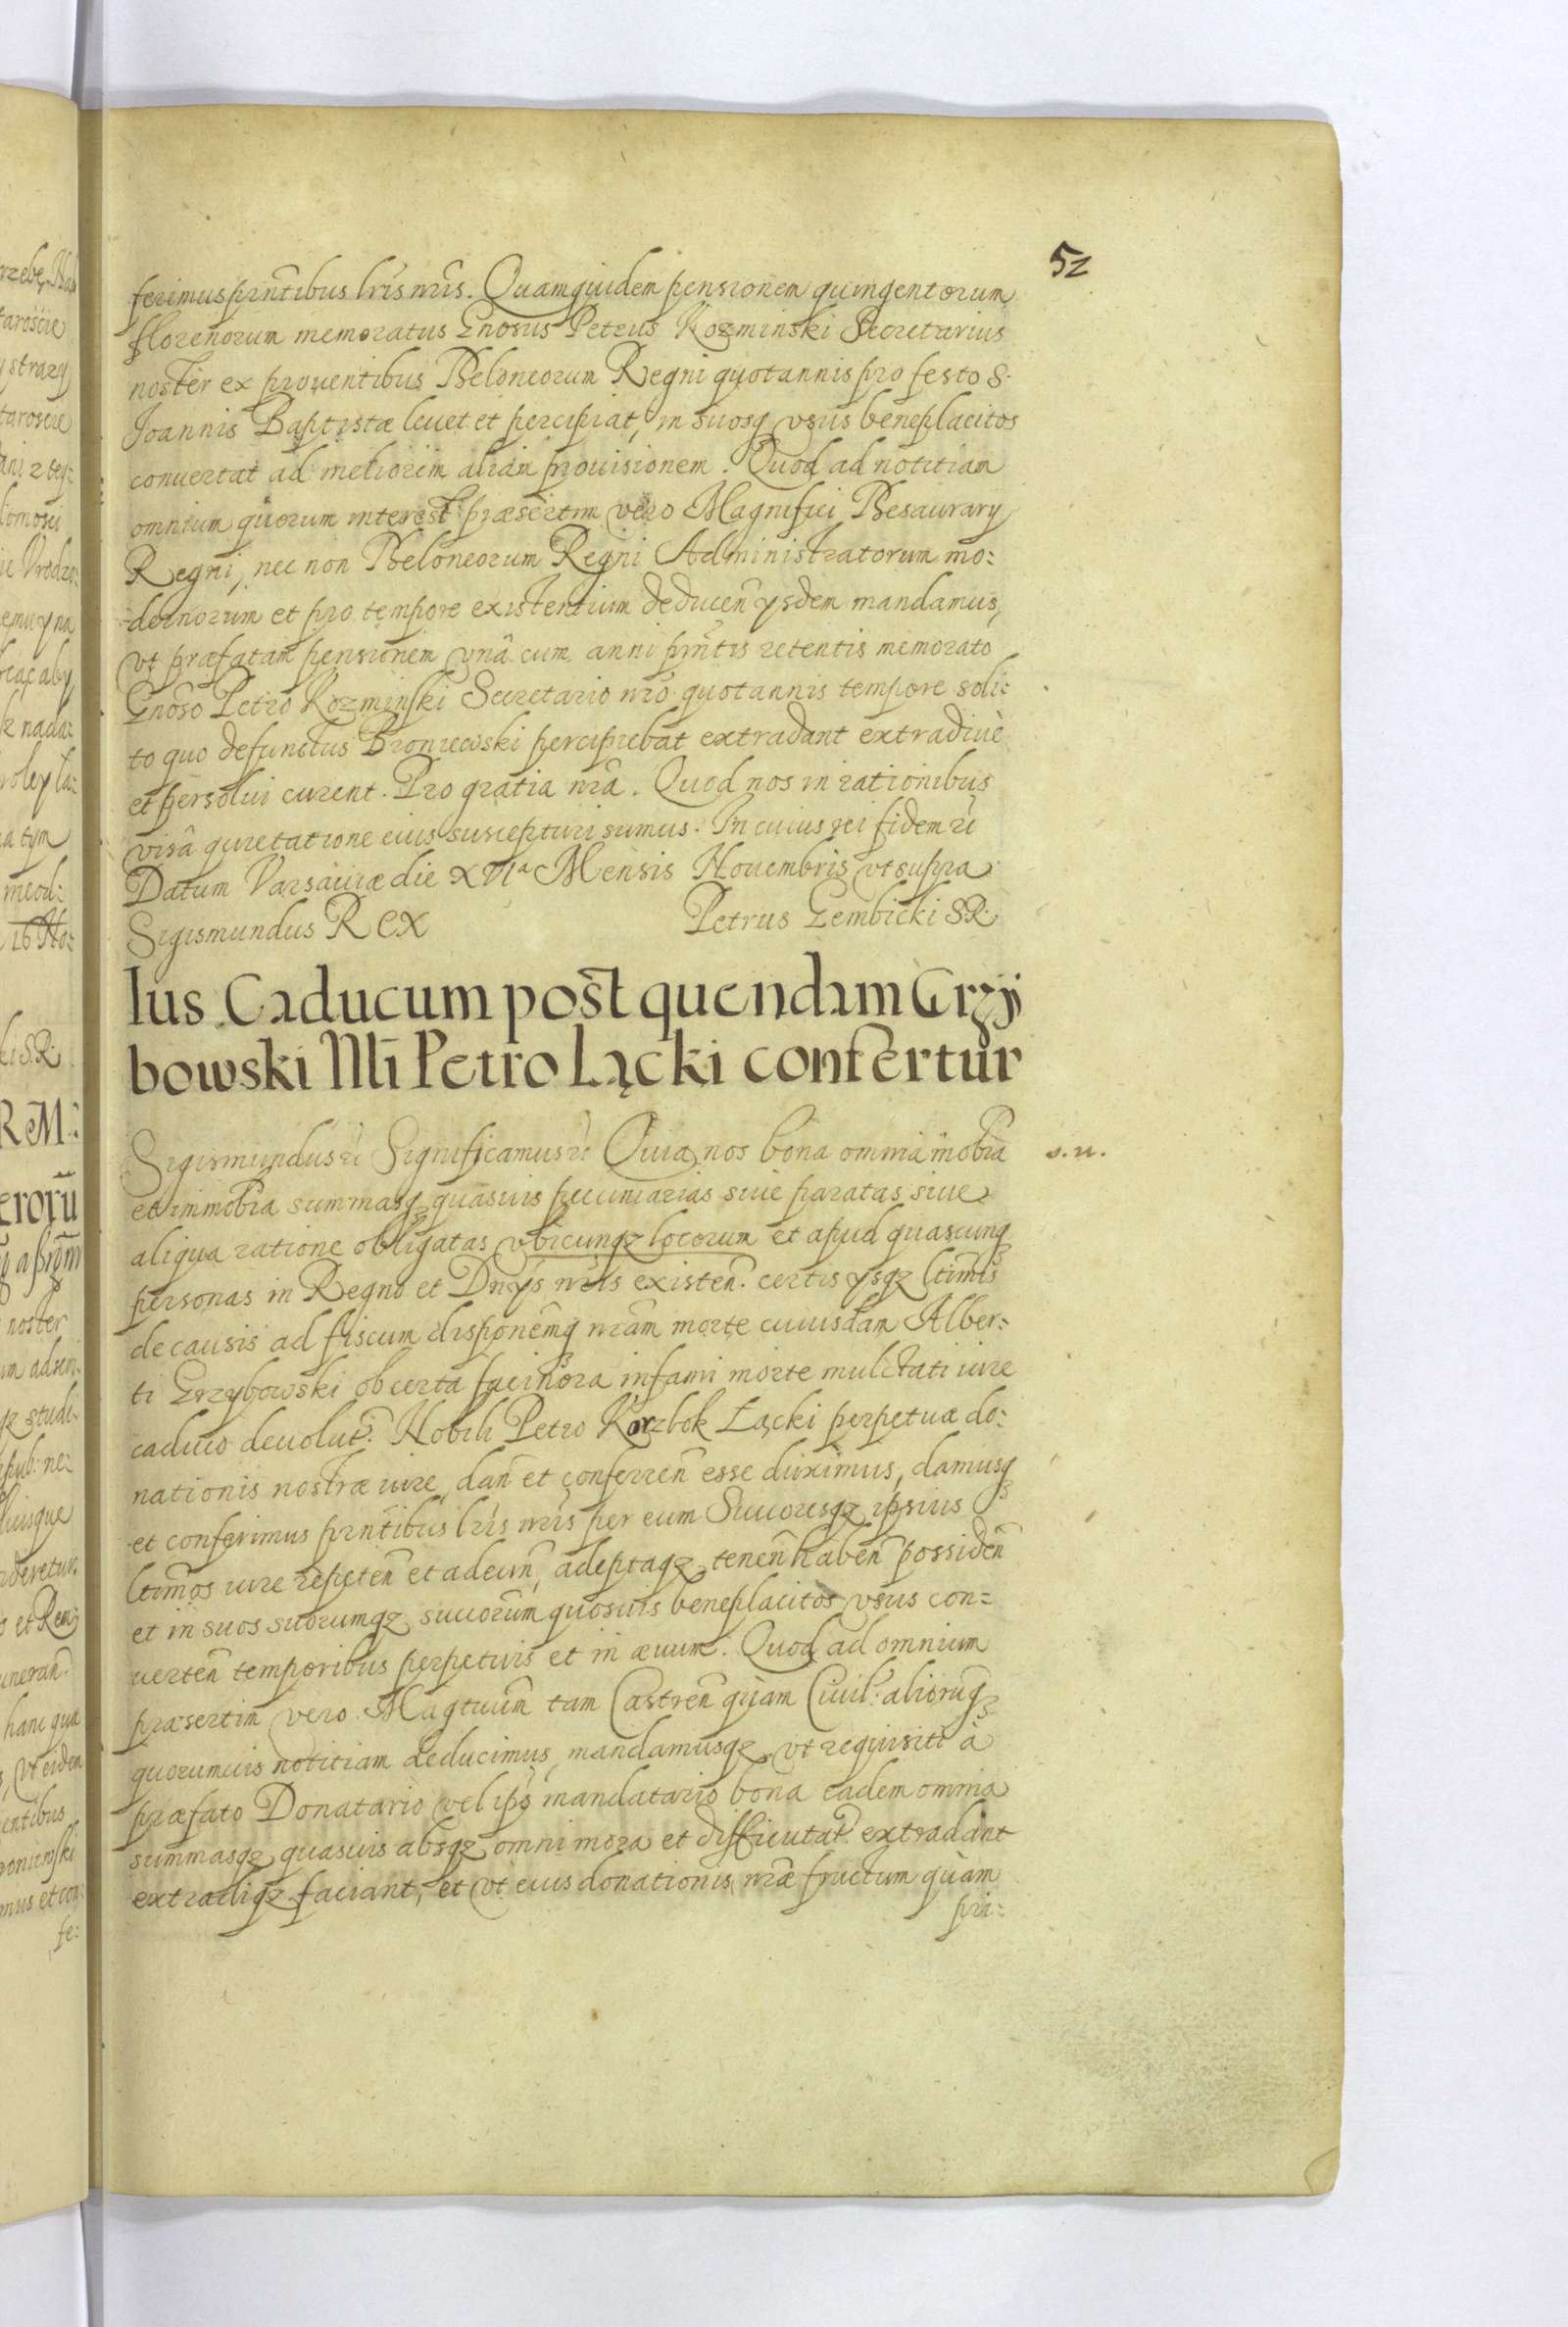 52
ferimus pn̄tibus lr̄is nr̄is. Quamquidem pensionem quingentorum
florenorum memoratus Gnosus Petrus Kozminski Secretarius
noster ex prouentibus Theloneorum Regni quotannis pro festo S.
Joannis Baptistæ leuet et percipiat, in suosq vsus beneplacitos
conuertat ad meliorem aliam prouisionem. Quod ad notitiam
omnium quorum interest præsertim vero Magnifici Thesaurarij
Regni, nec non Theloneorum Regni Administratorum mo:
dernorum et pro tempore existentium deducen̄ ysdem mandamus,
vt præfatam pensionem vnâ cum anni pn̄tis retentis memorato
Gnoso Petro Kozminski Secretario nr̄o quotannis tempore soli:
to quo defunctus Broniewski percipiebat extradant extradiuè
et persolui curent. Pro gratia nr̄a. Quod nos in rationibus
visâ quietatione eius suscepturi sumus. In cuius rei fidem &c
Datum Varsauiæ die XVIa Mensis Nouembris vt supra
Sigismundus Rex Petrus Gembicki SR.
Ius Caducum post quendam Grzy
bowski Nli Petro Łącki confertur
Sigismundus &c Significamus &c Quia nos bona omnia mobīa
s. n.
et immobīa summasqz quasuis pecuniarias siue paratas siue
aliqua ratione obligatas vbicunqz locorum et apud quascunqz
personas in Regno et Dnijs nr̄is existen̄. certis ysqz ltimis
de causis ad fiscum disponēmq nr̄am morte cuiusdam Alber:
ti Grzybowski ob certa facinora infami morte mulctati iure
caduco deuolut: Nobili Petro Korzbok Łącki perpetuæ do:
nationis nostræ iure dan̄ et conferren̄ esse duximus, damusq
et conferimus pn̄tibus lr̄is nr̄is per eum Succoresqz ipsius
ltimos iure repeten̄ et adeun̄, adeptaqz tenen̄ haben̄ possiden̄
et in suos suorumqz succorum quosuis beneplacitos vsus con=
uerten̄ temporibus perpetuis et in æuum. Quod ad omnium
præsertim vero Magtuum tam Castren̄ quam Ciuil: aliorūqz
quorumuis notitiam deducimus, mandamusqz vt requisiti à
præfato Donatario vel ips̄ mandatario bona eadem omnia
summasqz quasuis absqz omni mora et difficutat̄ extradant
extradiqz faciant, et vt eius donationis nr̄æ fructum quàm
pri: